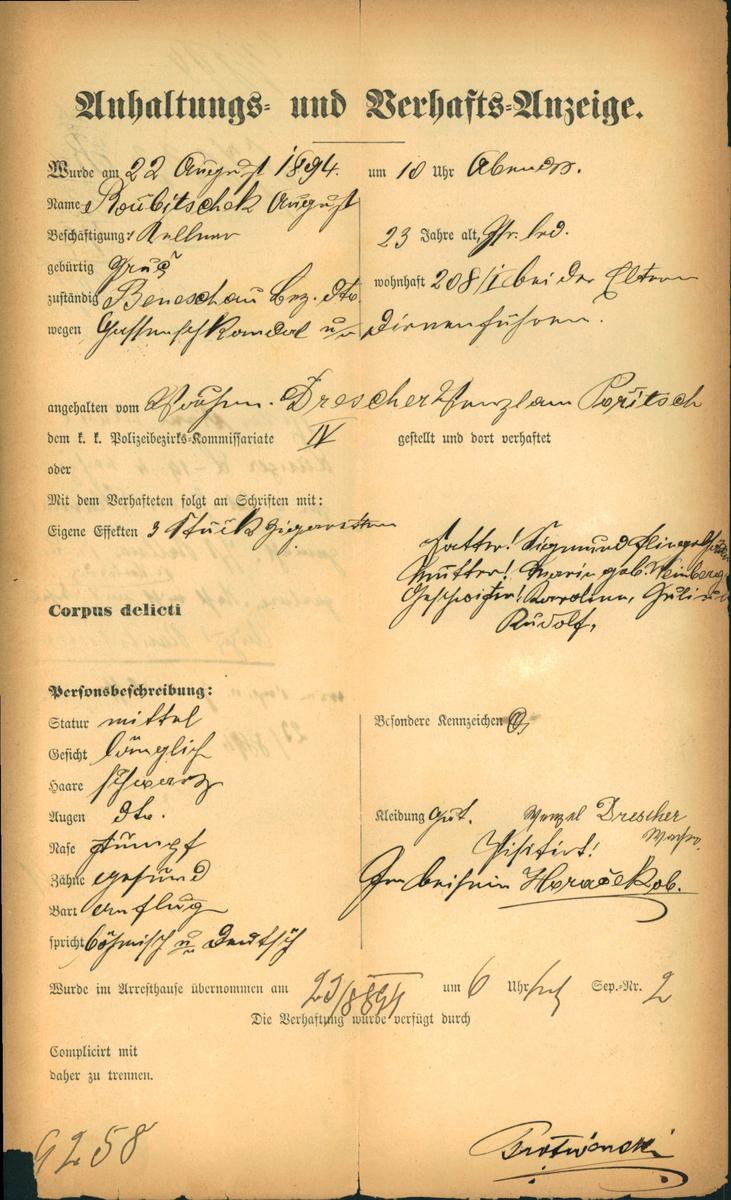 Anhaltungs- und Verhafts-Anzeige.
Wurde am 22 August 1894. um 10 Uhr Abends.
Name Roubitschek August
Beschäftigung: Kellner 23 Jahre alt, Isr. led.
gebürtig
wohnhaft 208/I bei den Eltern
zuständig Beneschau Bez. dto.
wegen Gassenskandal u. Dirnenführen.
angehalten vom Wachm. Drescher Wenzl am Poritsch
dem k. k. Polizeibezirks-Kommissariate IV gestellt und dort verhaftet
oder
Mit dem Verhafteten folgt an Schriften mit:
Eigene Effekten 3 Stück Zigaretten
Vatter! Sigmund
Mutter! Marie geb. Weinberg
Geschwister! Karolina, Juli u
Rudolf,
Corpus delicti
Personsbeschreibung:
Statur mittel Besondere Kennzeichen
Gesicht länglich
Haare schwarz
Augen dto. Kleidung Gut. Wenzel Drescher
Nase stumpf Visitirt!
Zähne gesund Im beisein Horaček ob.
Bart anflug
spricht böhmisch u. Deutsch
Wurde im Arresthause übernommen am 23/8 894 um 6 Uhr frh Sep.-Nr. 2
Die Verhaftung wurde verfügt durch
Complicirt mit
daher zu trennen.
9258